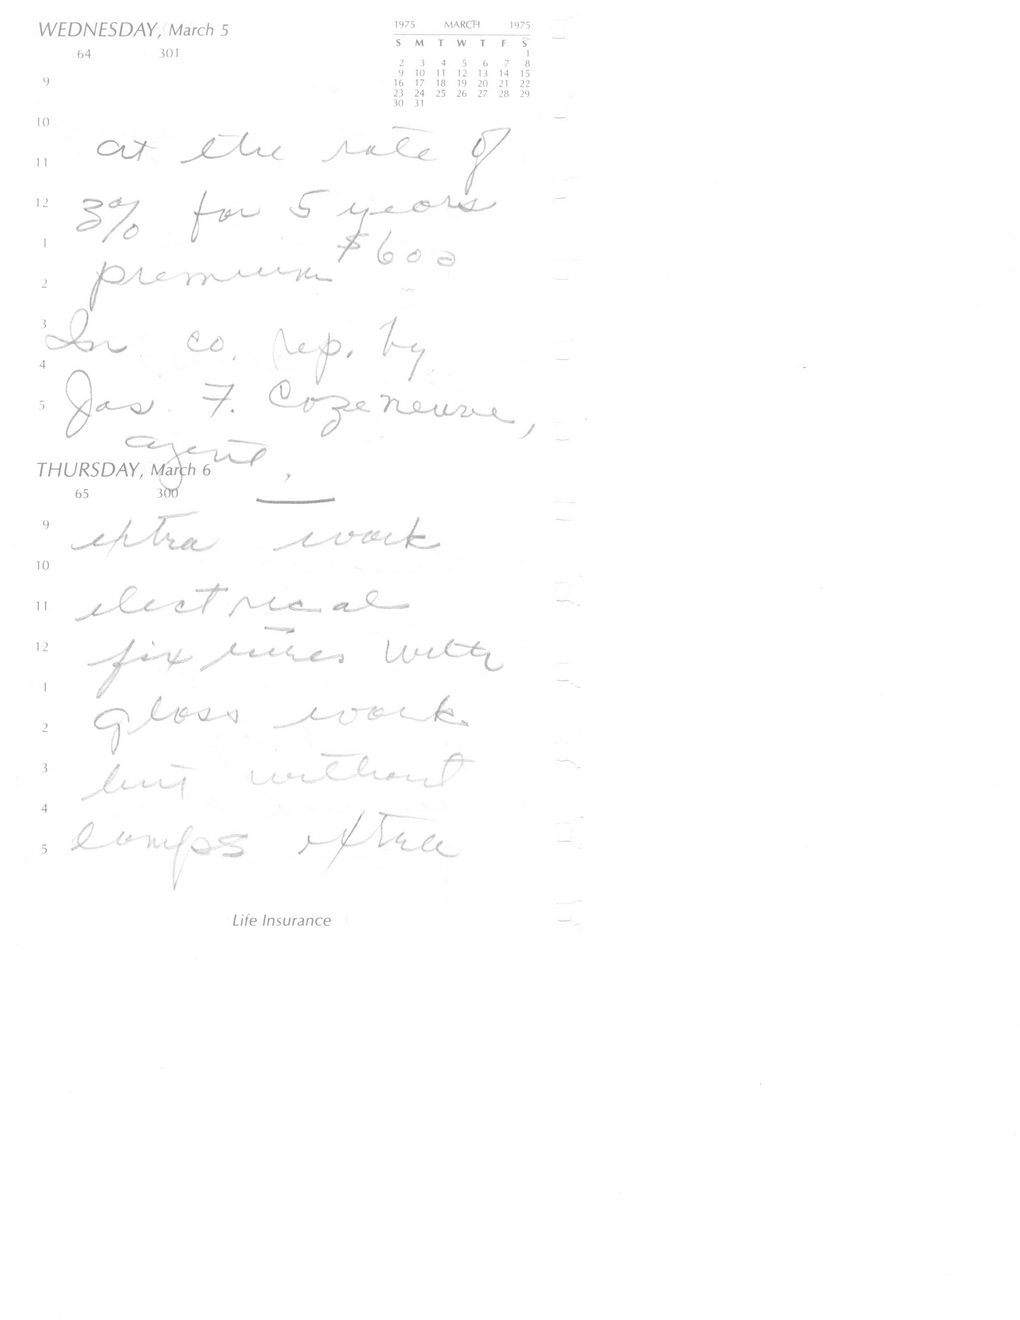 WEDNESDAY, March 5
64 301
1975 MARCH 1975
S M T W T F S
1
2 3 4 5 6 7 8
9 10 11 12 13 14 15
16 17 18 19 20 21 22
23 24 25 26 27 28 29
30 31
9
10
11 at the rate of
12 3% for 5 years
1 $600
2 premium
3 In co. rep. by
4
5 Jas. F. Cazeneuve,
agent,
THURSDAY, March 6
65 300
9 extra work
10
11 electrical
12 fixtures with
1
2 glass work
3 but without
4
5 lamps extra
Life Insurance